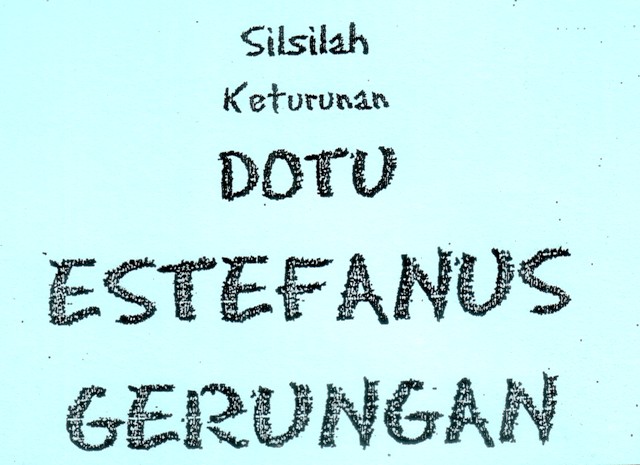 Silsilah
Keturunan
DOTU
ESTEFANUS
GERUNGAN